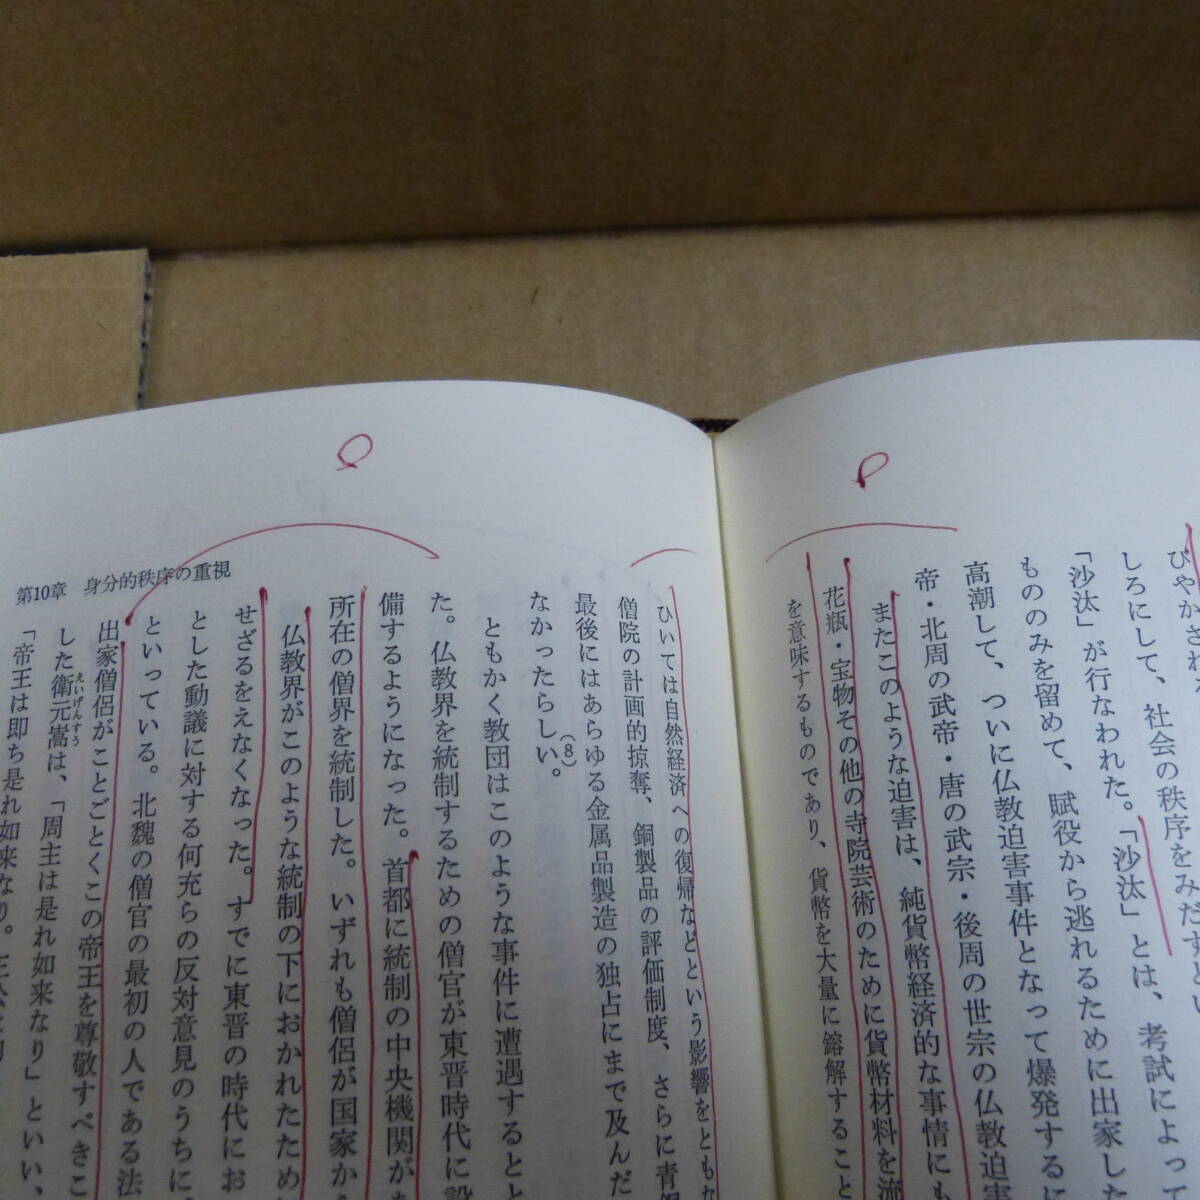 びやかされ
しろにして、社会の秩序をみだすとい
「沙汰」が行なわれた。「沙汰」とは、考試によって
もののみを留めて、賦役から逃れるために出家した
高潮して、ついに仏教迫害事件となって爆発するに
帝・北周の武帝・唐の武宗・後周の世宗の仏教迫害
またこのような迫害は、純貨幣経済的な事情にも
花瓶・宝物その他の寺院芸術のために貨幣材料を流
を意味するものであり、貨幣を大量に鎔解すること
ひいては自然経済への復帰などという影響をともな
僧院の計画的掠奪、銅製品の評価制度、さらに青銅
最後にはあらゆる金属品製造の独占にまで及んだ
なかったらしい。(8)
ともかく教団はこのような事件に遭遇すると
た。仏教界を統制するための僧官が東晋時代に設
備するようになった。首都に統制の中央機関があ
所在の僧界を統制した。いずれも僧侶が国家か
仏教界がこのような統制の下におかれため
せざるをえなくなった。すでに東晋の時代にお
とした動議に対する何充らの反対意見のうちに
といっている。北魏の僧官の最初の人である法
出家僧侶がことごとくこの帝王を尊敬すべきこ
した衛元嵩は、「周主は是れ如来なり」といい、
えいげんすう
「帝王は即ち是れ如来なり。
第10章 身分的秩序の重視